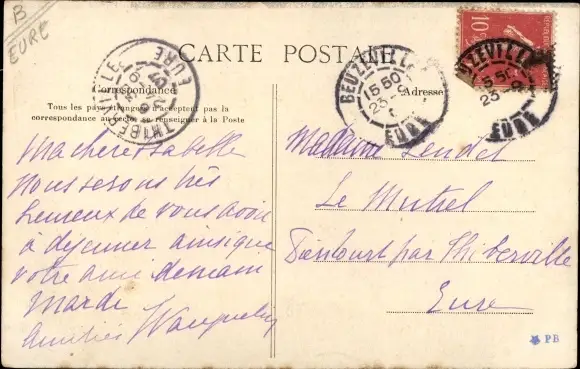 B
EURE
CARTE POSTALE
Correspondance
Adresse
Tous les pays étrangers n'acceptent pas la
correspondance au recto, se renseigner à la Poste
THIBERVILLE
EURE
BEUZEVILLE
15 50
23 - 9
EURE
BEUZEVILLE
15 50
23 - 9
EURE
10
Ma chère Isabelle
Nous serons très
heureux de vous avoir
à déjeuner ainsi que
votre amie demain
Mardi
Amitiés Wauquelin
Madame
Le Mutrel
par Thiberville
Eure
PB